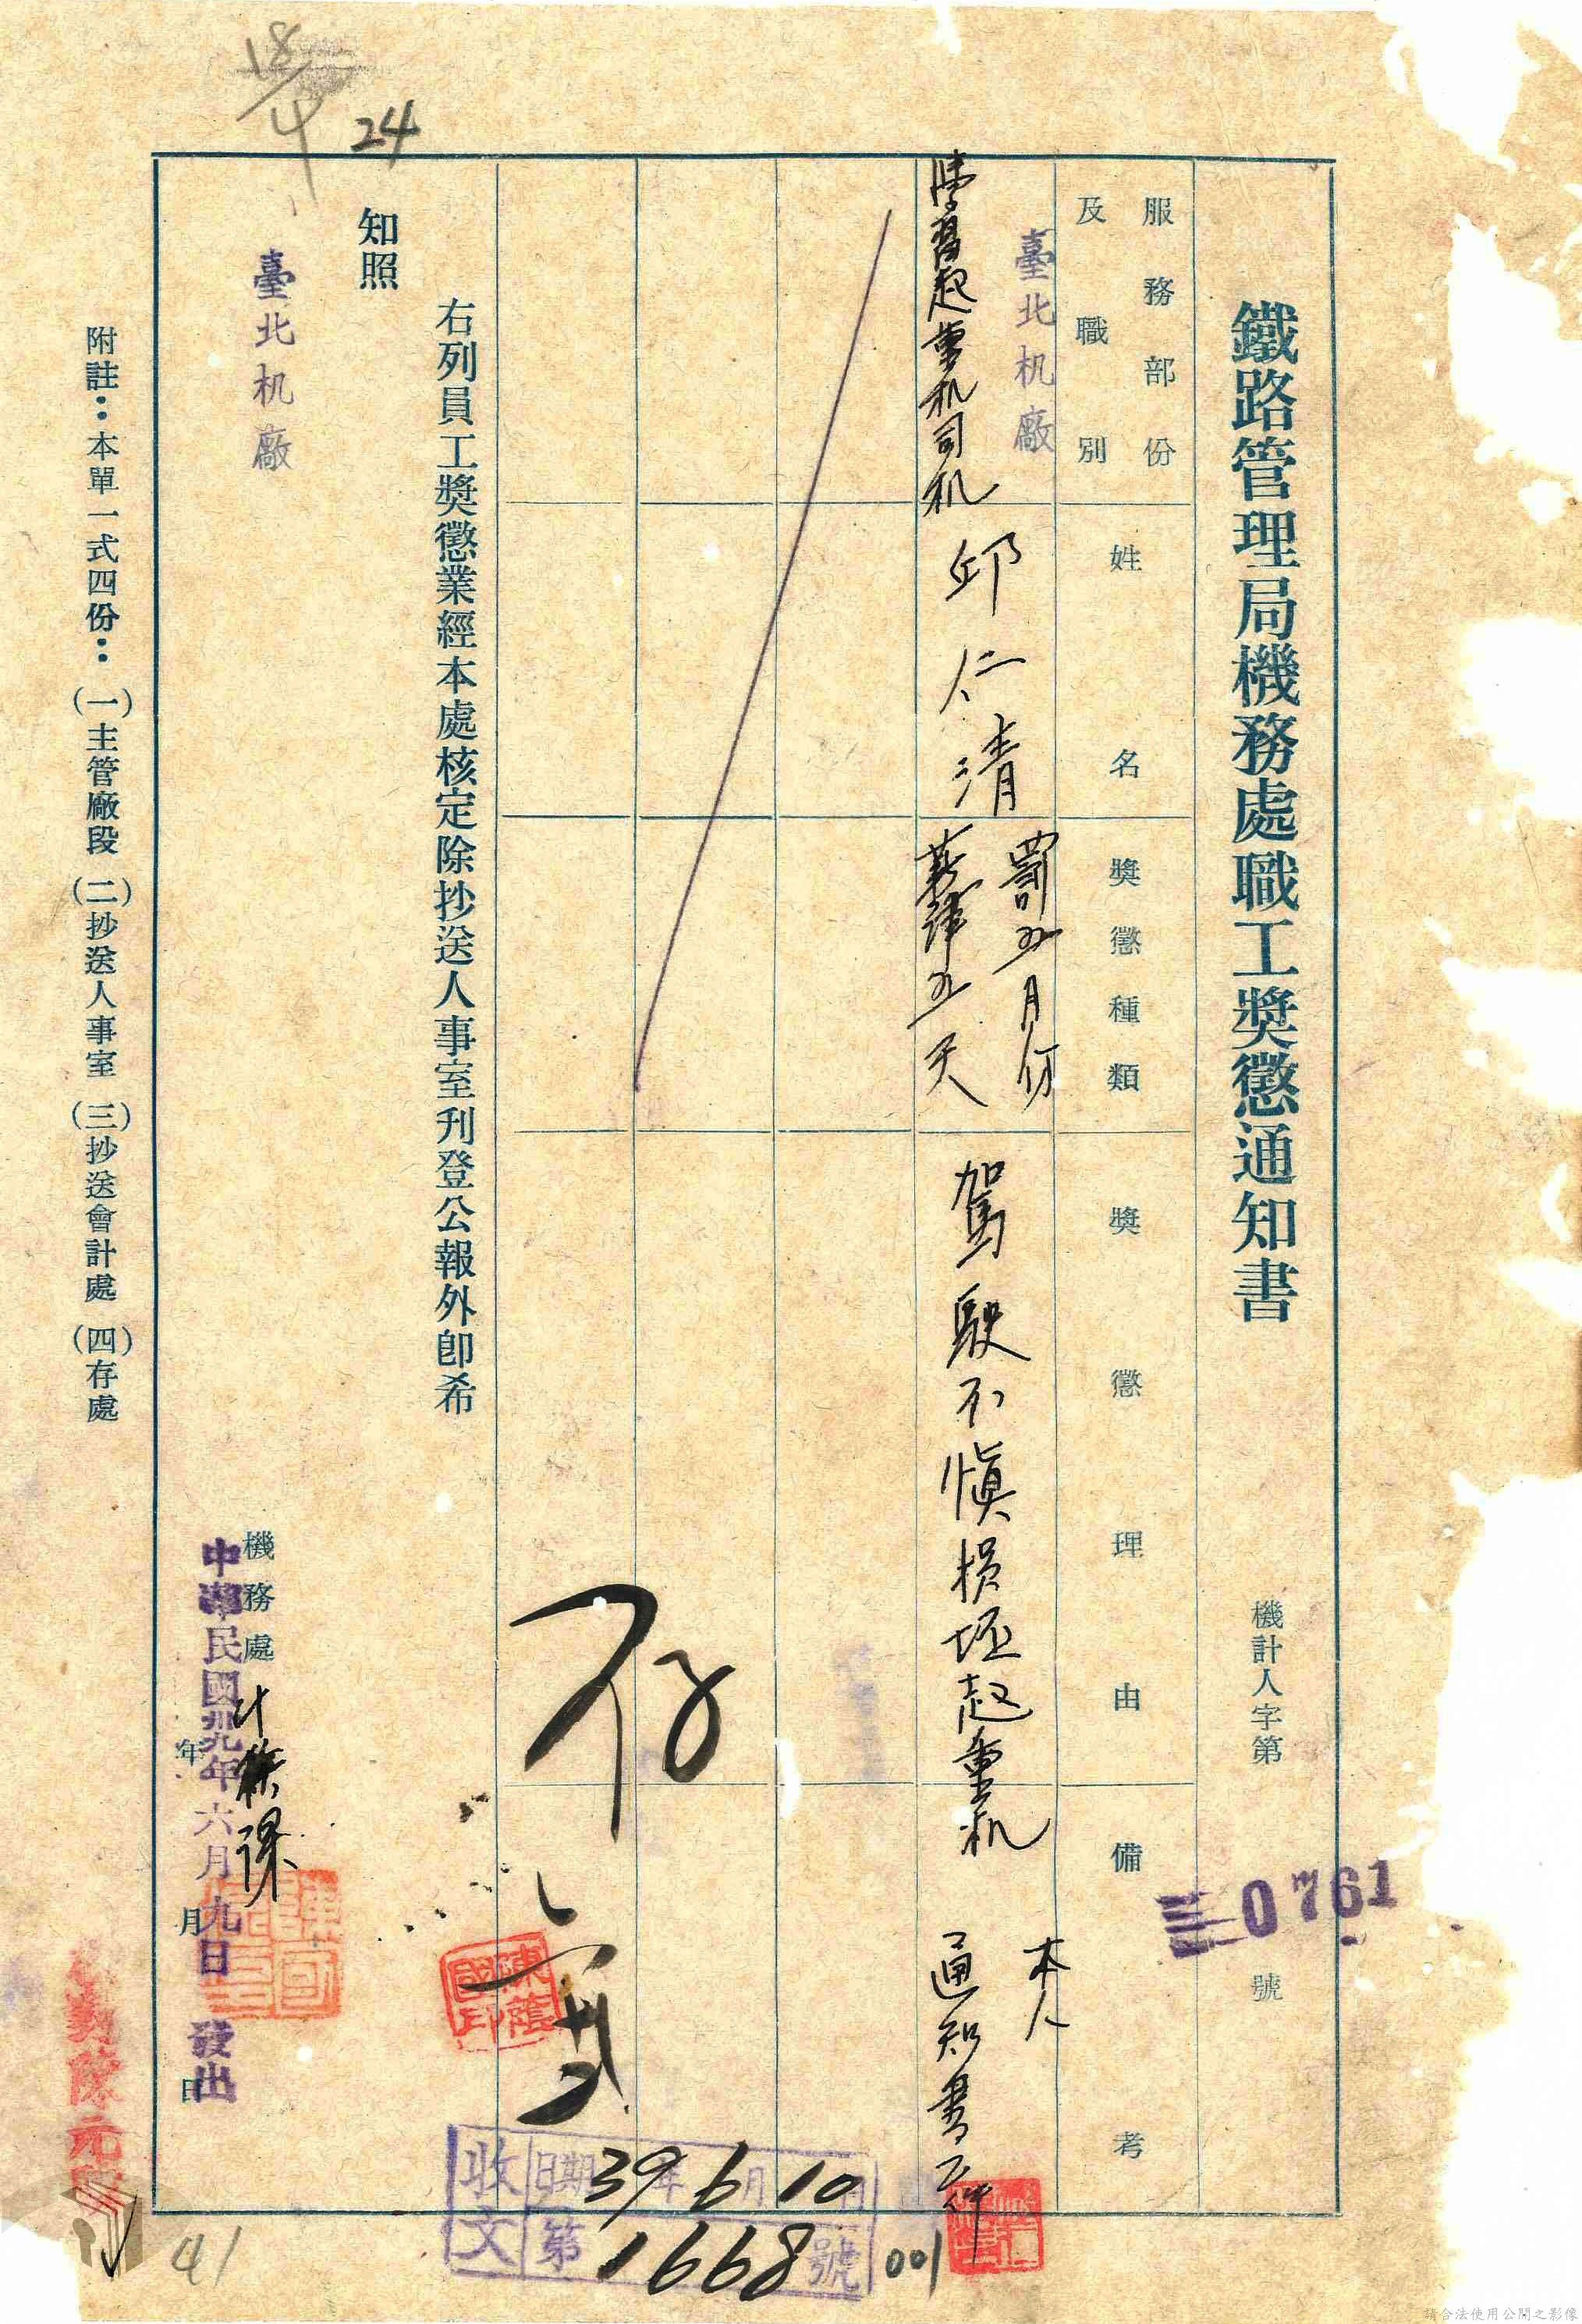 鐵路管理局機務處職工獎懲通知書
機計人字第
0761
號
服務部份
及職別
姓名
獎懲種類
獎懲理由
備考
臺北机廠
學習起重机司机
邱仁清
罰五月份
薪津五天
駕駛不慎損坯起重机
本人
通知書一件
右列員工獎懲業經本處核定除抄送人事室刊登公報外卽希
知照
臺北机廠
機務處
計核課
年月日
中華民國卅九年六月九日發出
附註：本單一式四份：(一)主管廠段(二)抄送人事室(三)抄送會計處(四)存處
存
陳蔭國印
收文
日期39年6月10日
第1668號
001
18/4
24
41
請合法使用公開之影像